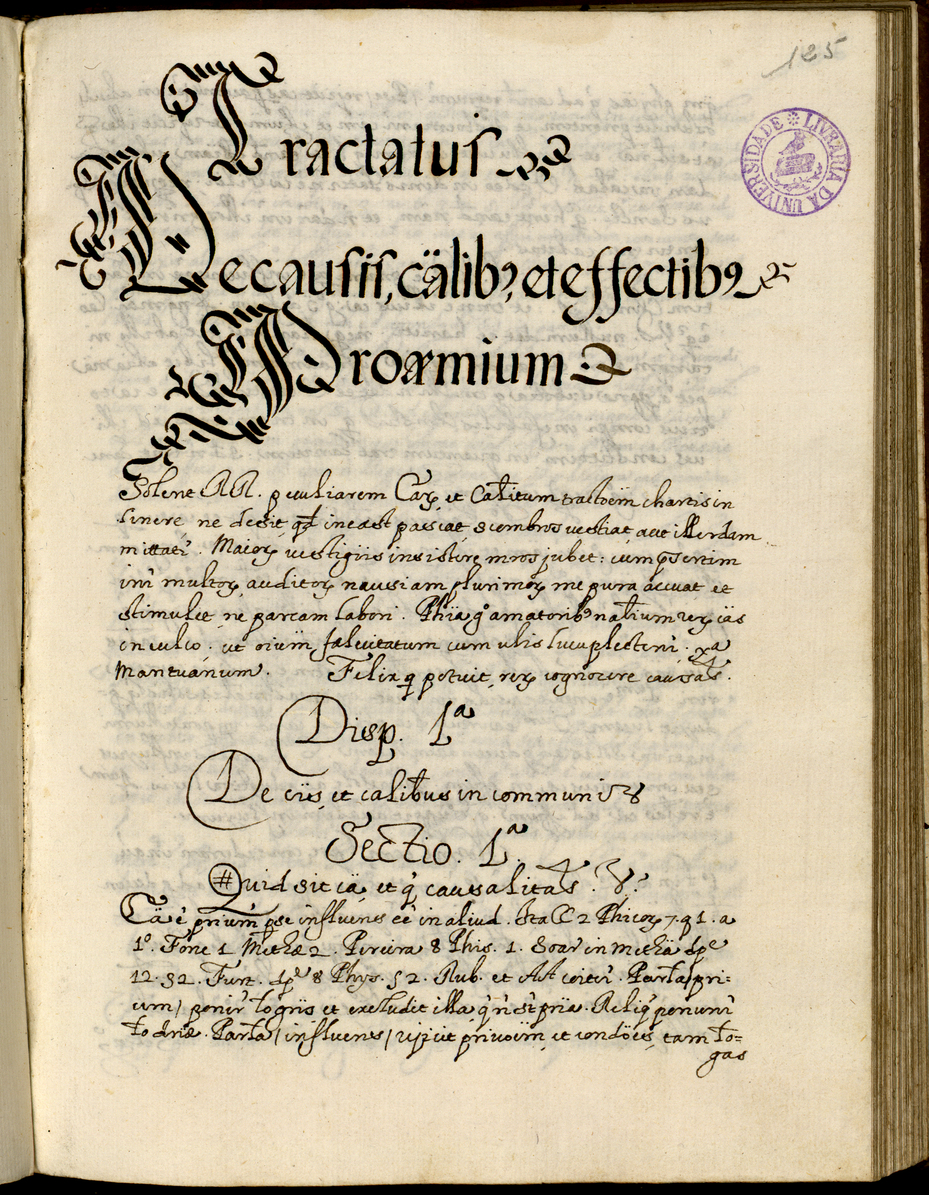 125
LIVRARIA DA UNIVERSIDADE
Tractatus
De causis, cãlibꝫ et effectibꝫ
Proæmium
Solent AA. peculiarem Caꝝ et Cal̃itum chartis in
linere, ne desit qd̃ ineast scombros vestiat aut illerdam
mittati. Maioꝝ vestigiis insistere mros jubet: cum
multoꝝ auditoꝝ nausiam plurimoꝝ me pura acuat et
stimulet ne parcam labori. Phiæ amatoribꝫ nãlium reꝝ cãs
inculco. ut oium falcitatum cum illis lucuplectini.
Mantuanum. Felix q̃ potuit, reꝝ cognoscere causas.
Disp. 1ª
De ciis, et calibus in communi
Sectio. 1ª
Quid sit cã, et q̃ causalitas. V.
Cã ẽ prium pse influens eẽ in aliud. Ita CC 2 Phicoꝝ 7. q 1. a
1º. Fonc 1 Methæ 2. Pereira 8 Phis. 1. Soar in Methã dpe
12. s2. Furt. dpe 8 Phys. s2. Rub. et AA coiter. Partla/pri:
um/ ponir to gnis et excludit illa q̃ ñ st̃ pria. Reliq̃ ponunt
to driæ. Partla/influens/rijcit priuoim, et condões, tam to=
gas